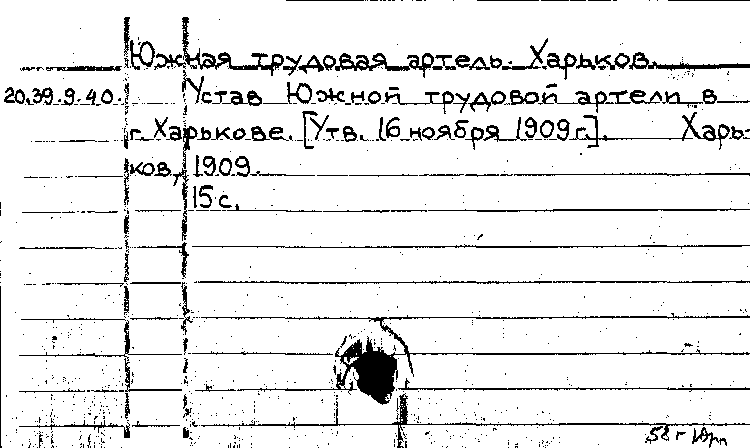 Южная трудовая артель. Харьков.
20.39.9.40. Устав Южной трудовой артели в
г. Харькове. [Утв. 16 ноября 1909 г.]. Харь-
ков, 1909.
15 с.
58 г